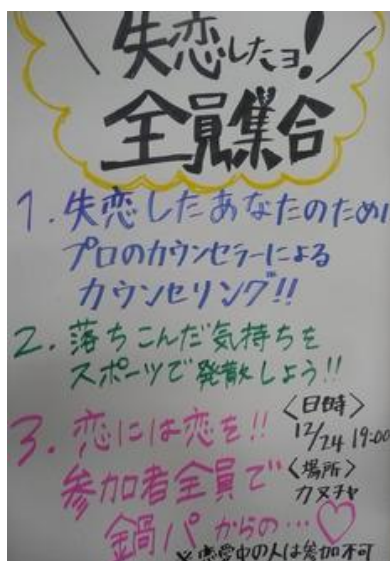 失恋したヨ!
全員集合
1. 失恋したあなたのために
プロのカウンセラーによる
カウンセリング!!
2. 落ちこんだ気持ちを
スポーツで発散しよう!!
3. 恋には恋を!!
参加者全員で
鍋パからの…♡
<日時>
12/24 19:00
<場所>
カヌチャ
※恋愛中の人は参加不可